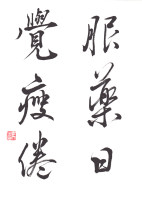 服藥日
覺瘦倦